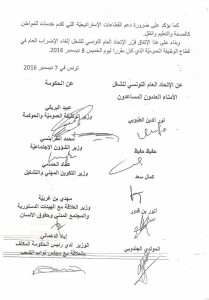 كما يؤكد على ضرورة دعم القطاعات الإستراتيجيّة التي تقدم خدمات للمواطن
كالصحة والتعليم والنقل.
وبناء على هذا الإتفاق قرّر الإتحاد العام التونسي للشغل إلغاء الإضراب العام في
قطاع الوظيفة العموميّة الذي كان مقررا ليوم الخميس 8 ديسمبر 2016.
تونس في 7 ديسمبر 2016
عن الإتحاد العام التونسي للشغل
الأمناء العامون المساعدون
نور الدين الطبوبي
حفيظ حفيظ
كمال سعد
أنور بن قدور
المولدي الجندوبي
عن الحكومة
عبيد البريكي
وزير الوظيفة العموميّة والحوكمة
محمد الطرابلسي
وزير الشؤون الإجتماعيّة
عماد الحمامي
وزير التكوين المهني والتشغيل
مهدي بن غربية
وزير العلاقة مع الهيئات الدستورية
والمجتمع المدني وحقوق الانسان
إياد الدهماني
الوزير لدى رئيس الحكومة المكلف
بالعلاقة مع مجلس نواب الشعب